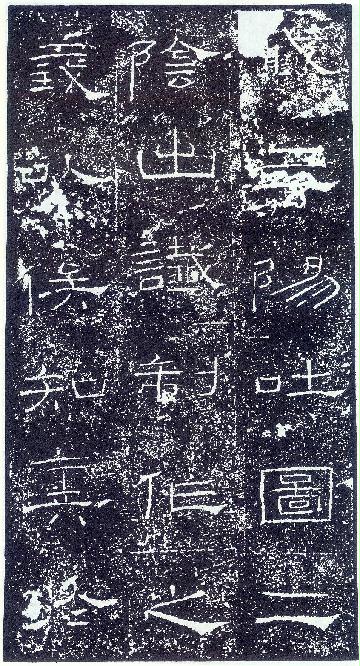 載三陽吐圖二
陰出讖制作之
義以俟知奧於